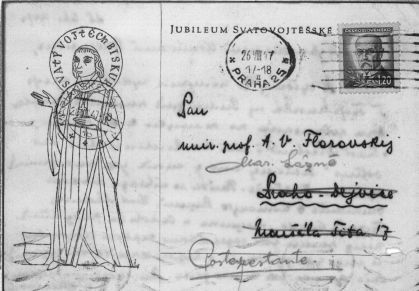 SVATÝ VOJTĚCH BISKUP
JUBILEUM SVATOVOJTĚŠSKÉ
26 VIII 47
17-18
PRAHA 25
ČESKOSLOVENSKO
1.20
Pan
univ. prof. A. V. Florovskij
Mar. Lázně
Praha - Dejvice
Maršála Tita 17